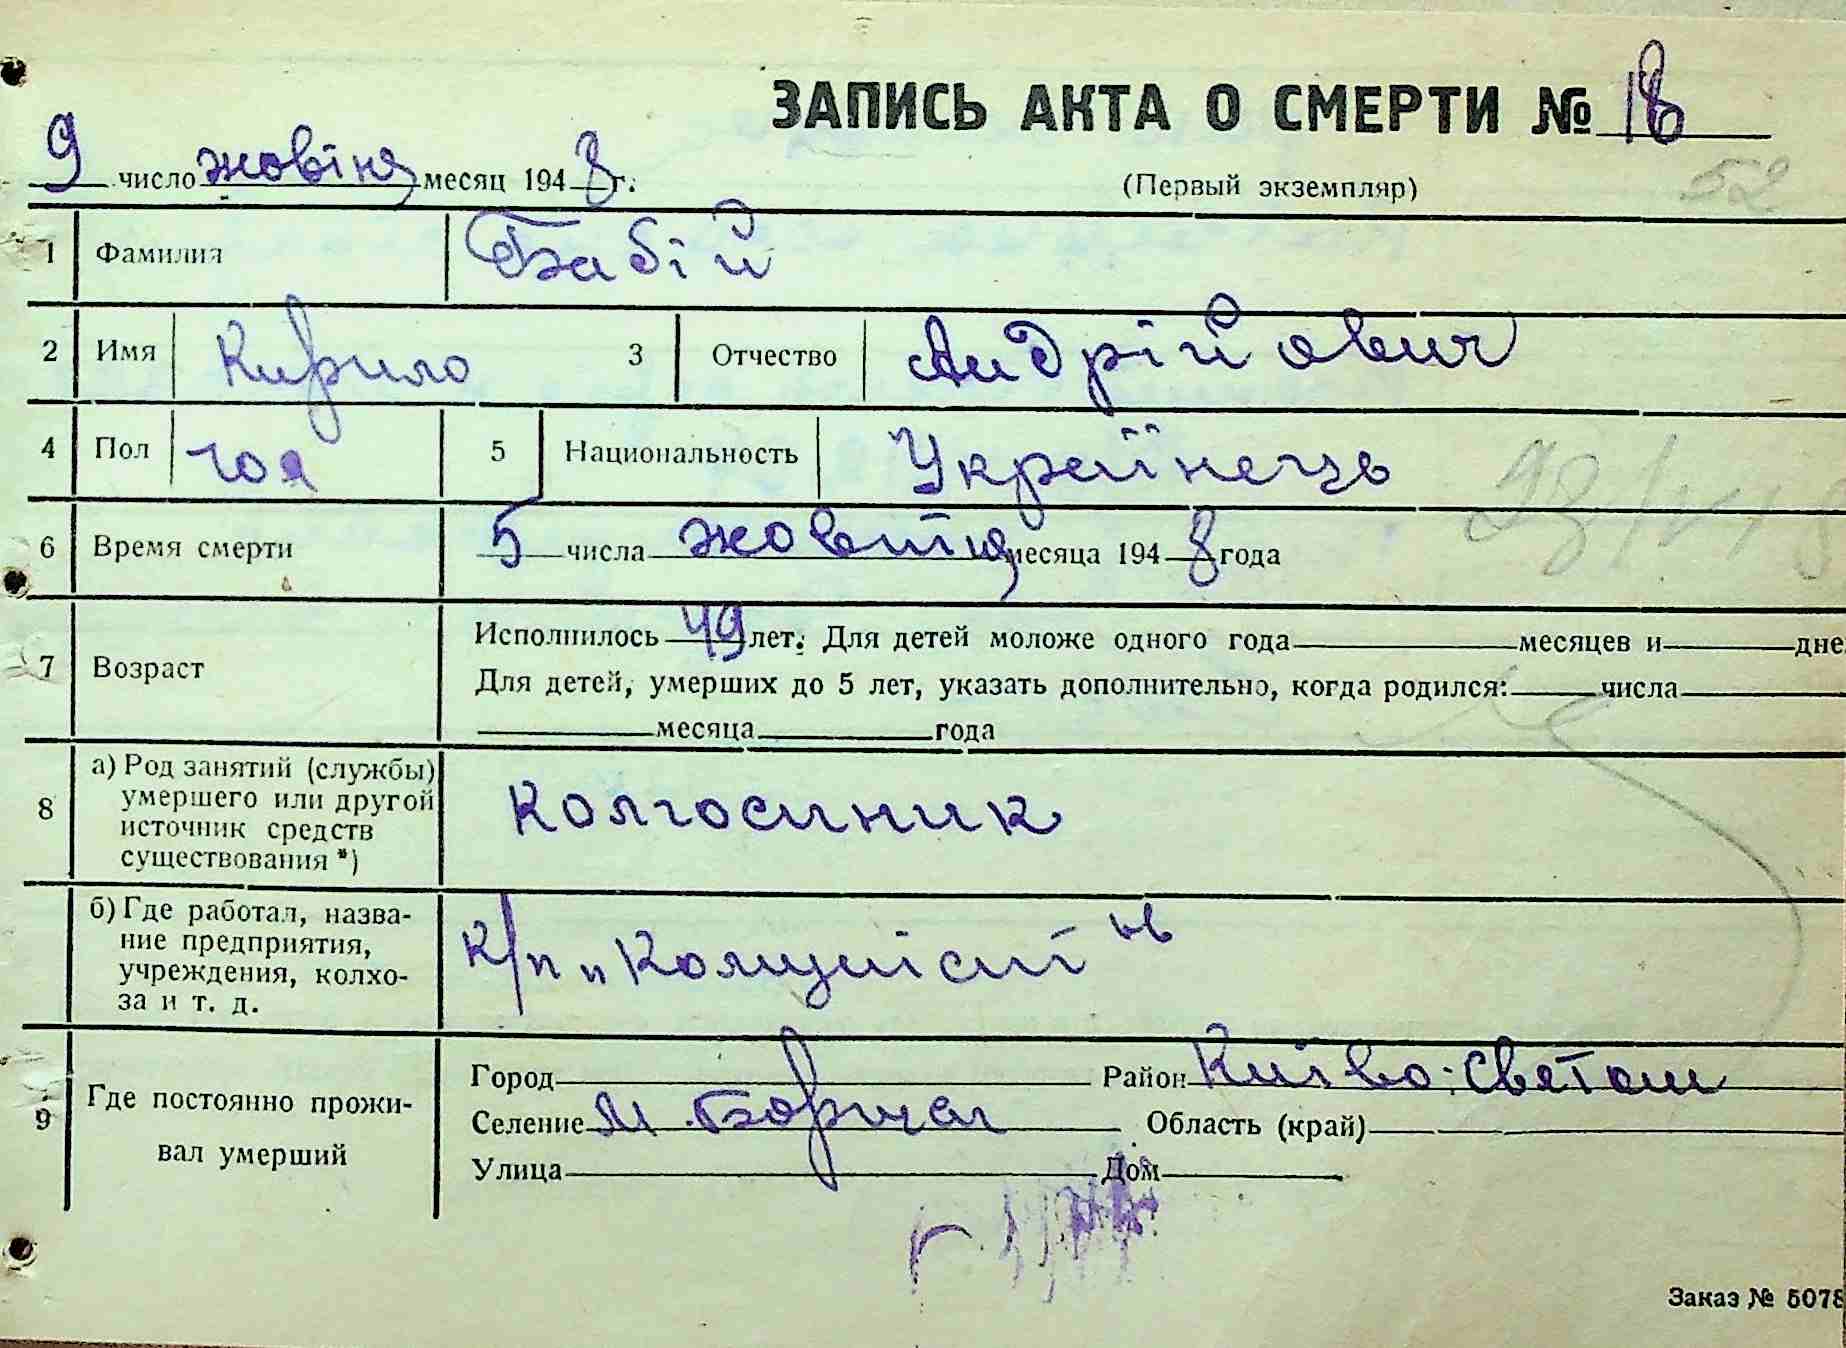 ЗАПИСЬ АКТА О СМЕРТИ № 18
9 число жовтня месяц 1948 г.
(Первый экземпляр)
52
1 Фамилия Бабій
2 Имя Кирило 3 Отчество Андрійович
4 Пол чол 5 Национальность Українець
6 Время смерти 5 числа жовтня месяца 1948 года
7 Возраст
Исполнилось 49 лет. Для детей моложе одного года месяцев и дне
Для детей, умерших до 5 лет, указать дополнительно, когда родился: числа
месяца года
8 а) Род занятий (службы) умершего или другой источник средств существования *) колгоспник
б) Где работал, назва-
ние предприятия,
учреждения, колхо-
за и т. д.
к/п "Комуніст"
9 Где постоянно прожи-
вал умерший
Город Район Києво-Святош
Селение М. Борщаг Область (край)
Улица Дом
Заказ № 5078